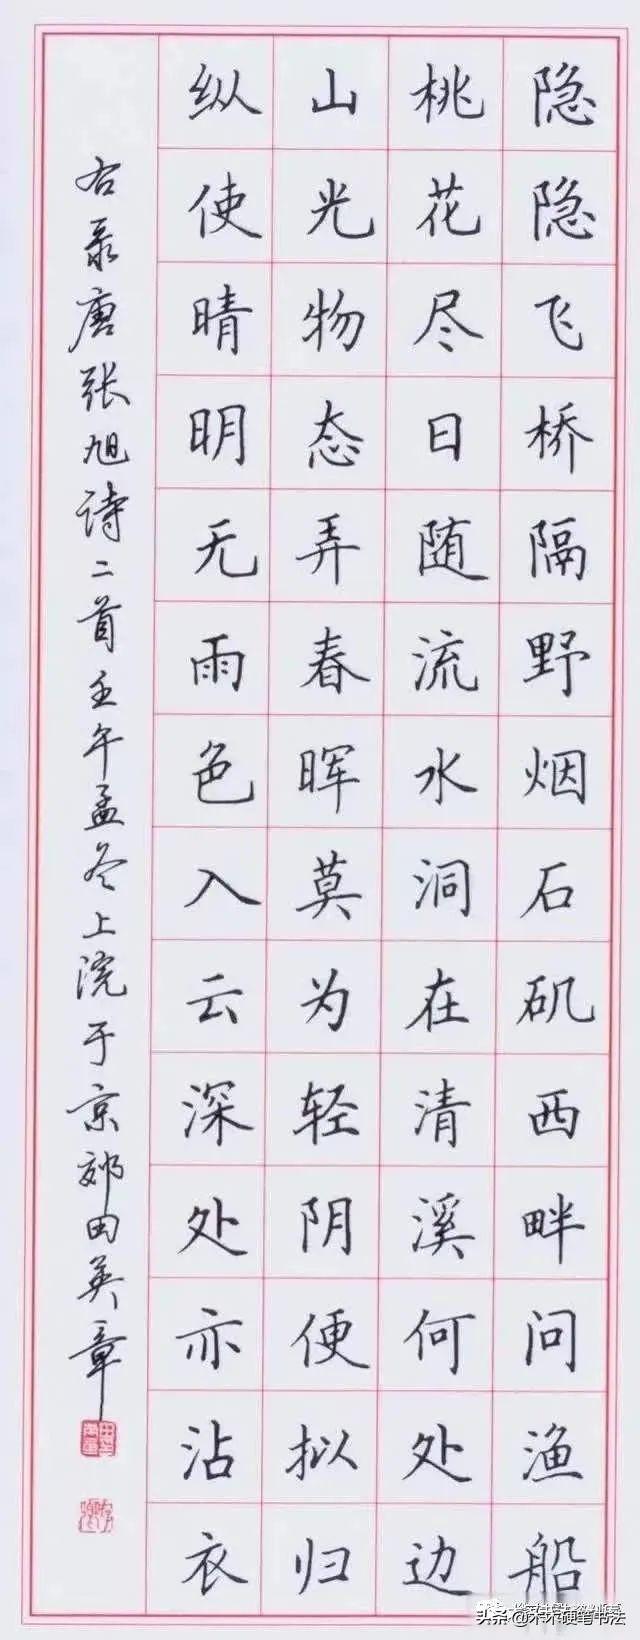 隐隐飞桥隔野烟石矶西畔问渔船
桃花尽日随流水洞在清溪何处边
山光物态弄春晖莫为轻阴便拟归
纵使晴明无雨色入云深处亦沾衣
右录唐张旭诗二首壬午孟冬上浣于京郊田英章
头条@不不硬笔书法